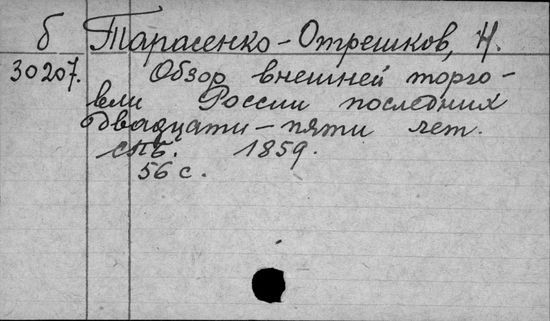 б Тарасенко-Отрешков, Н.
30207. Обзор внешней торго-
вли России последних
двадцати-пяти лет.
СПБ. 1859.
56 с.